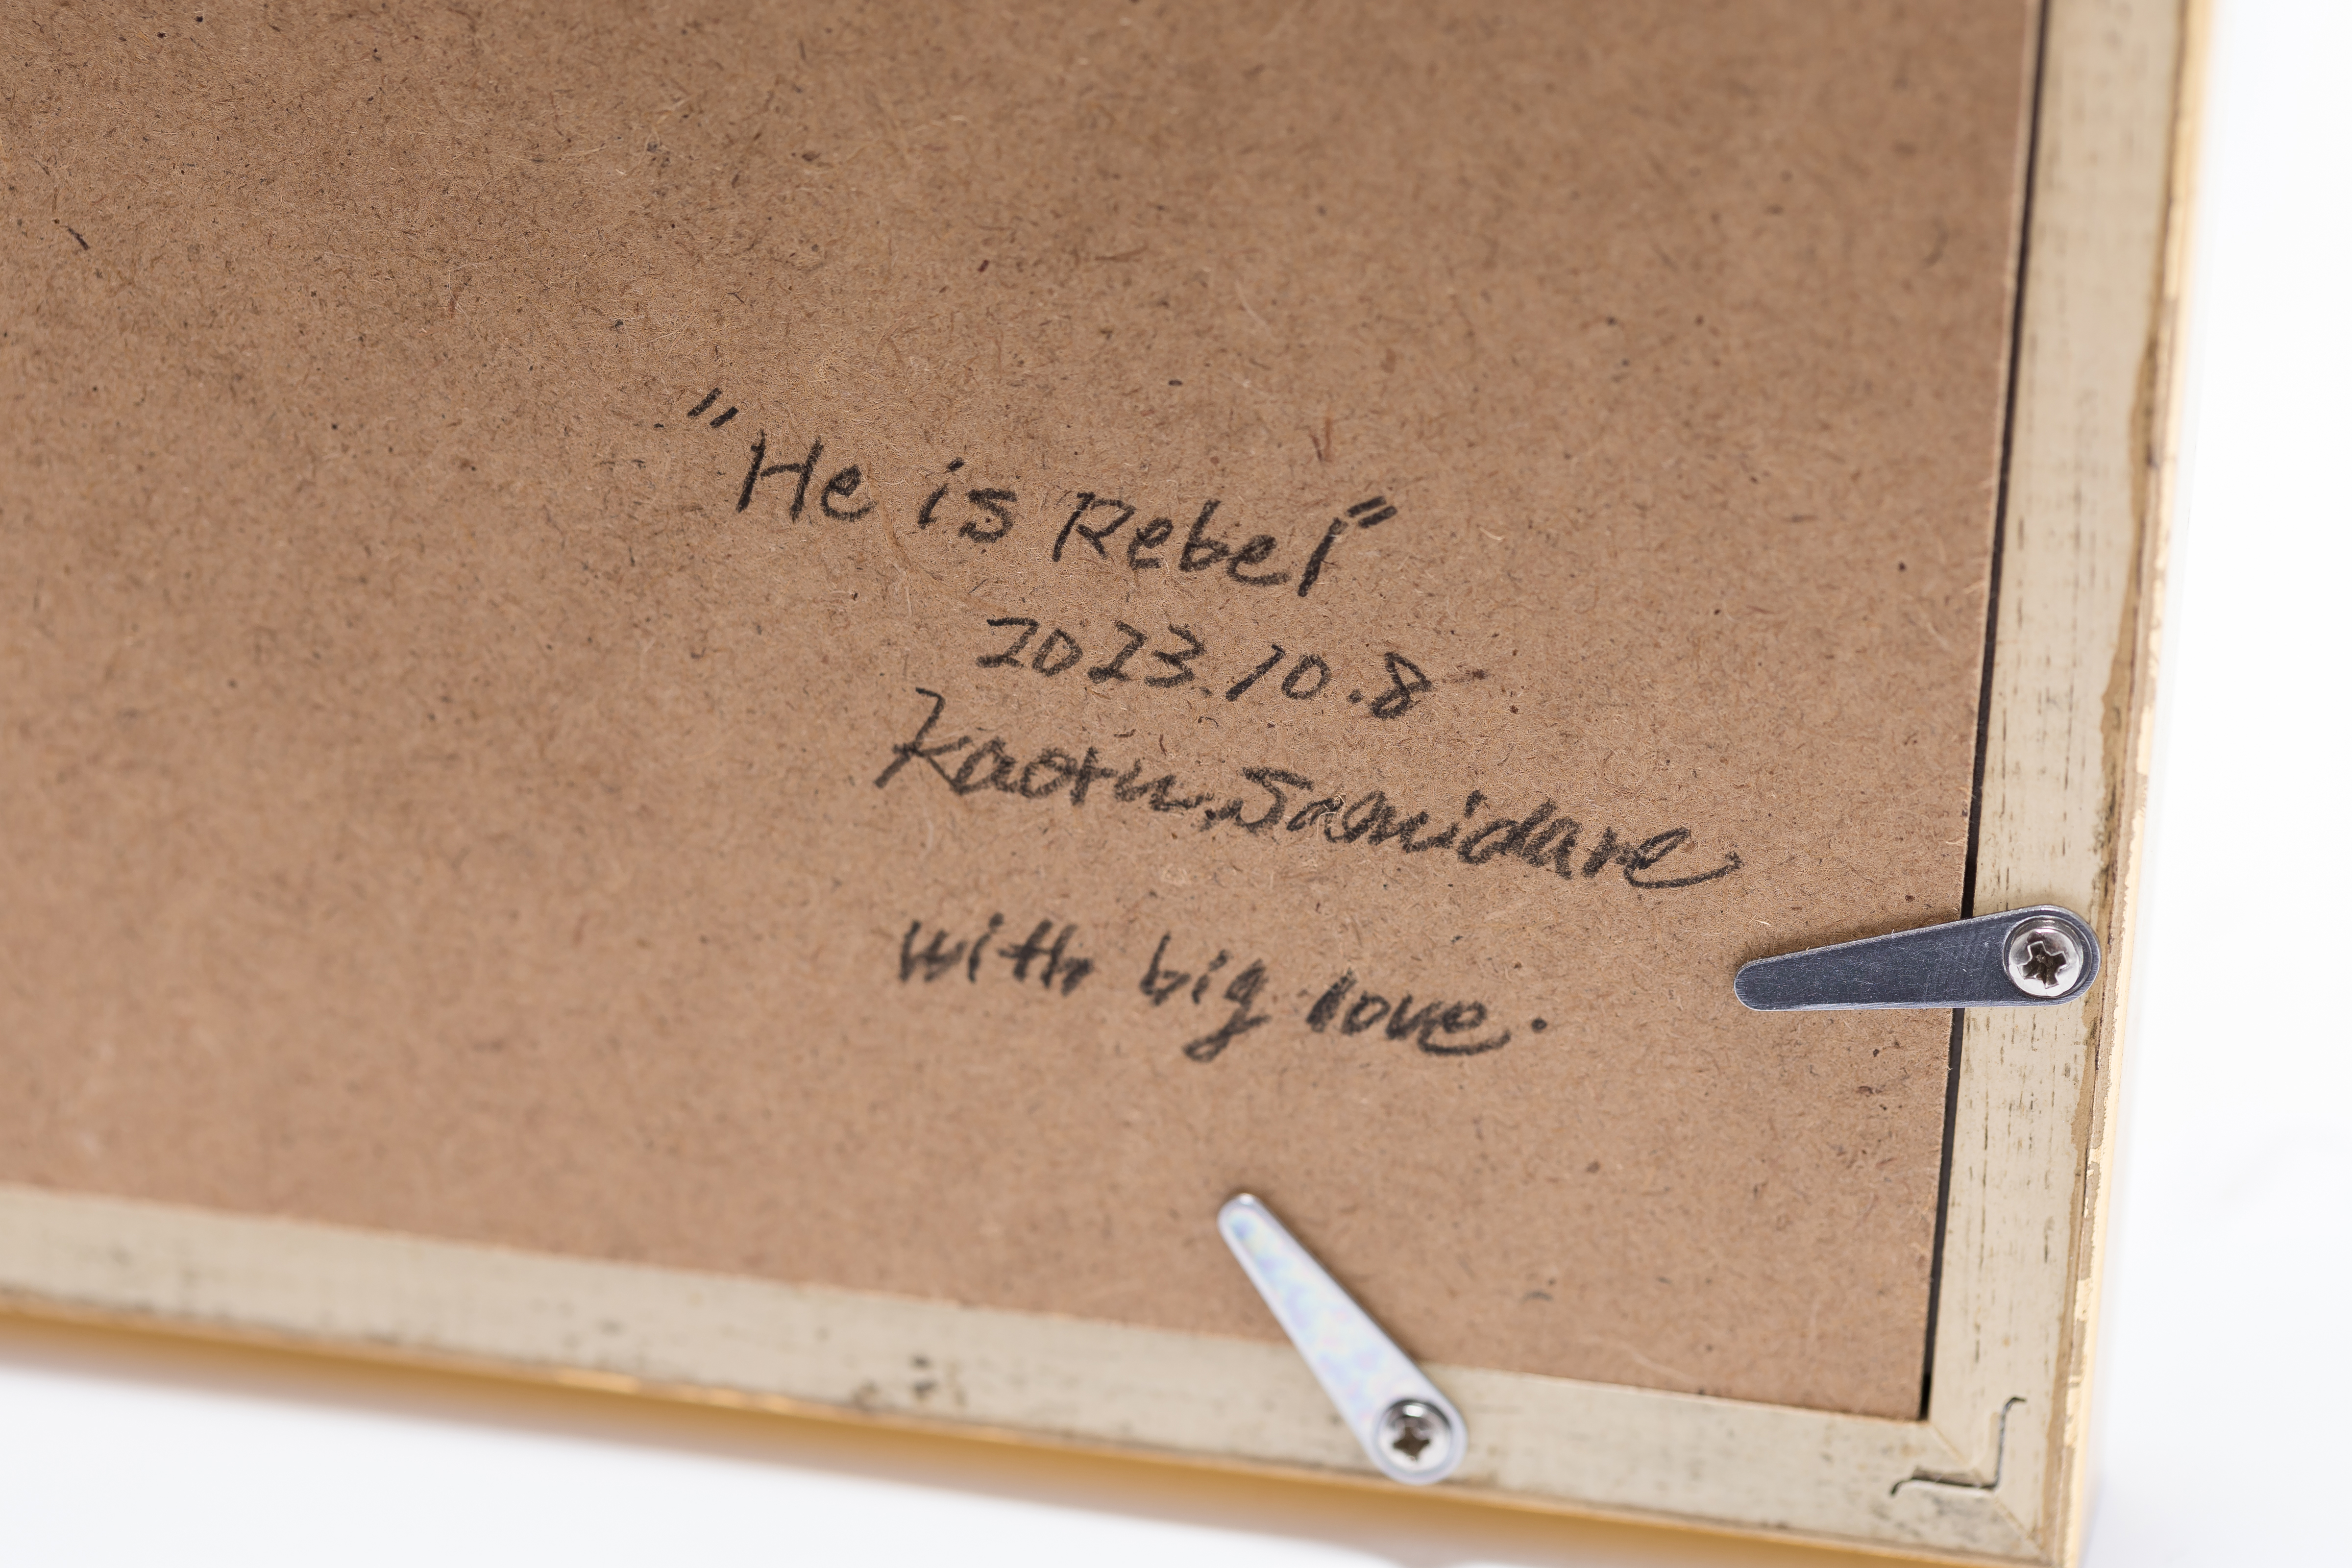 "He is Rebel"
2023.10.8
Kaoru.Samidare
with big love.